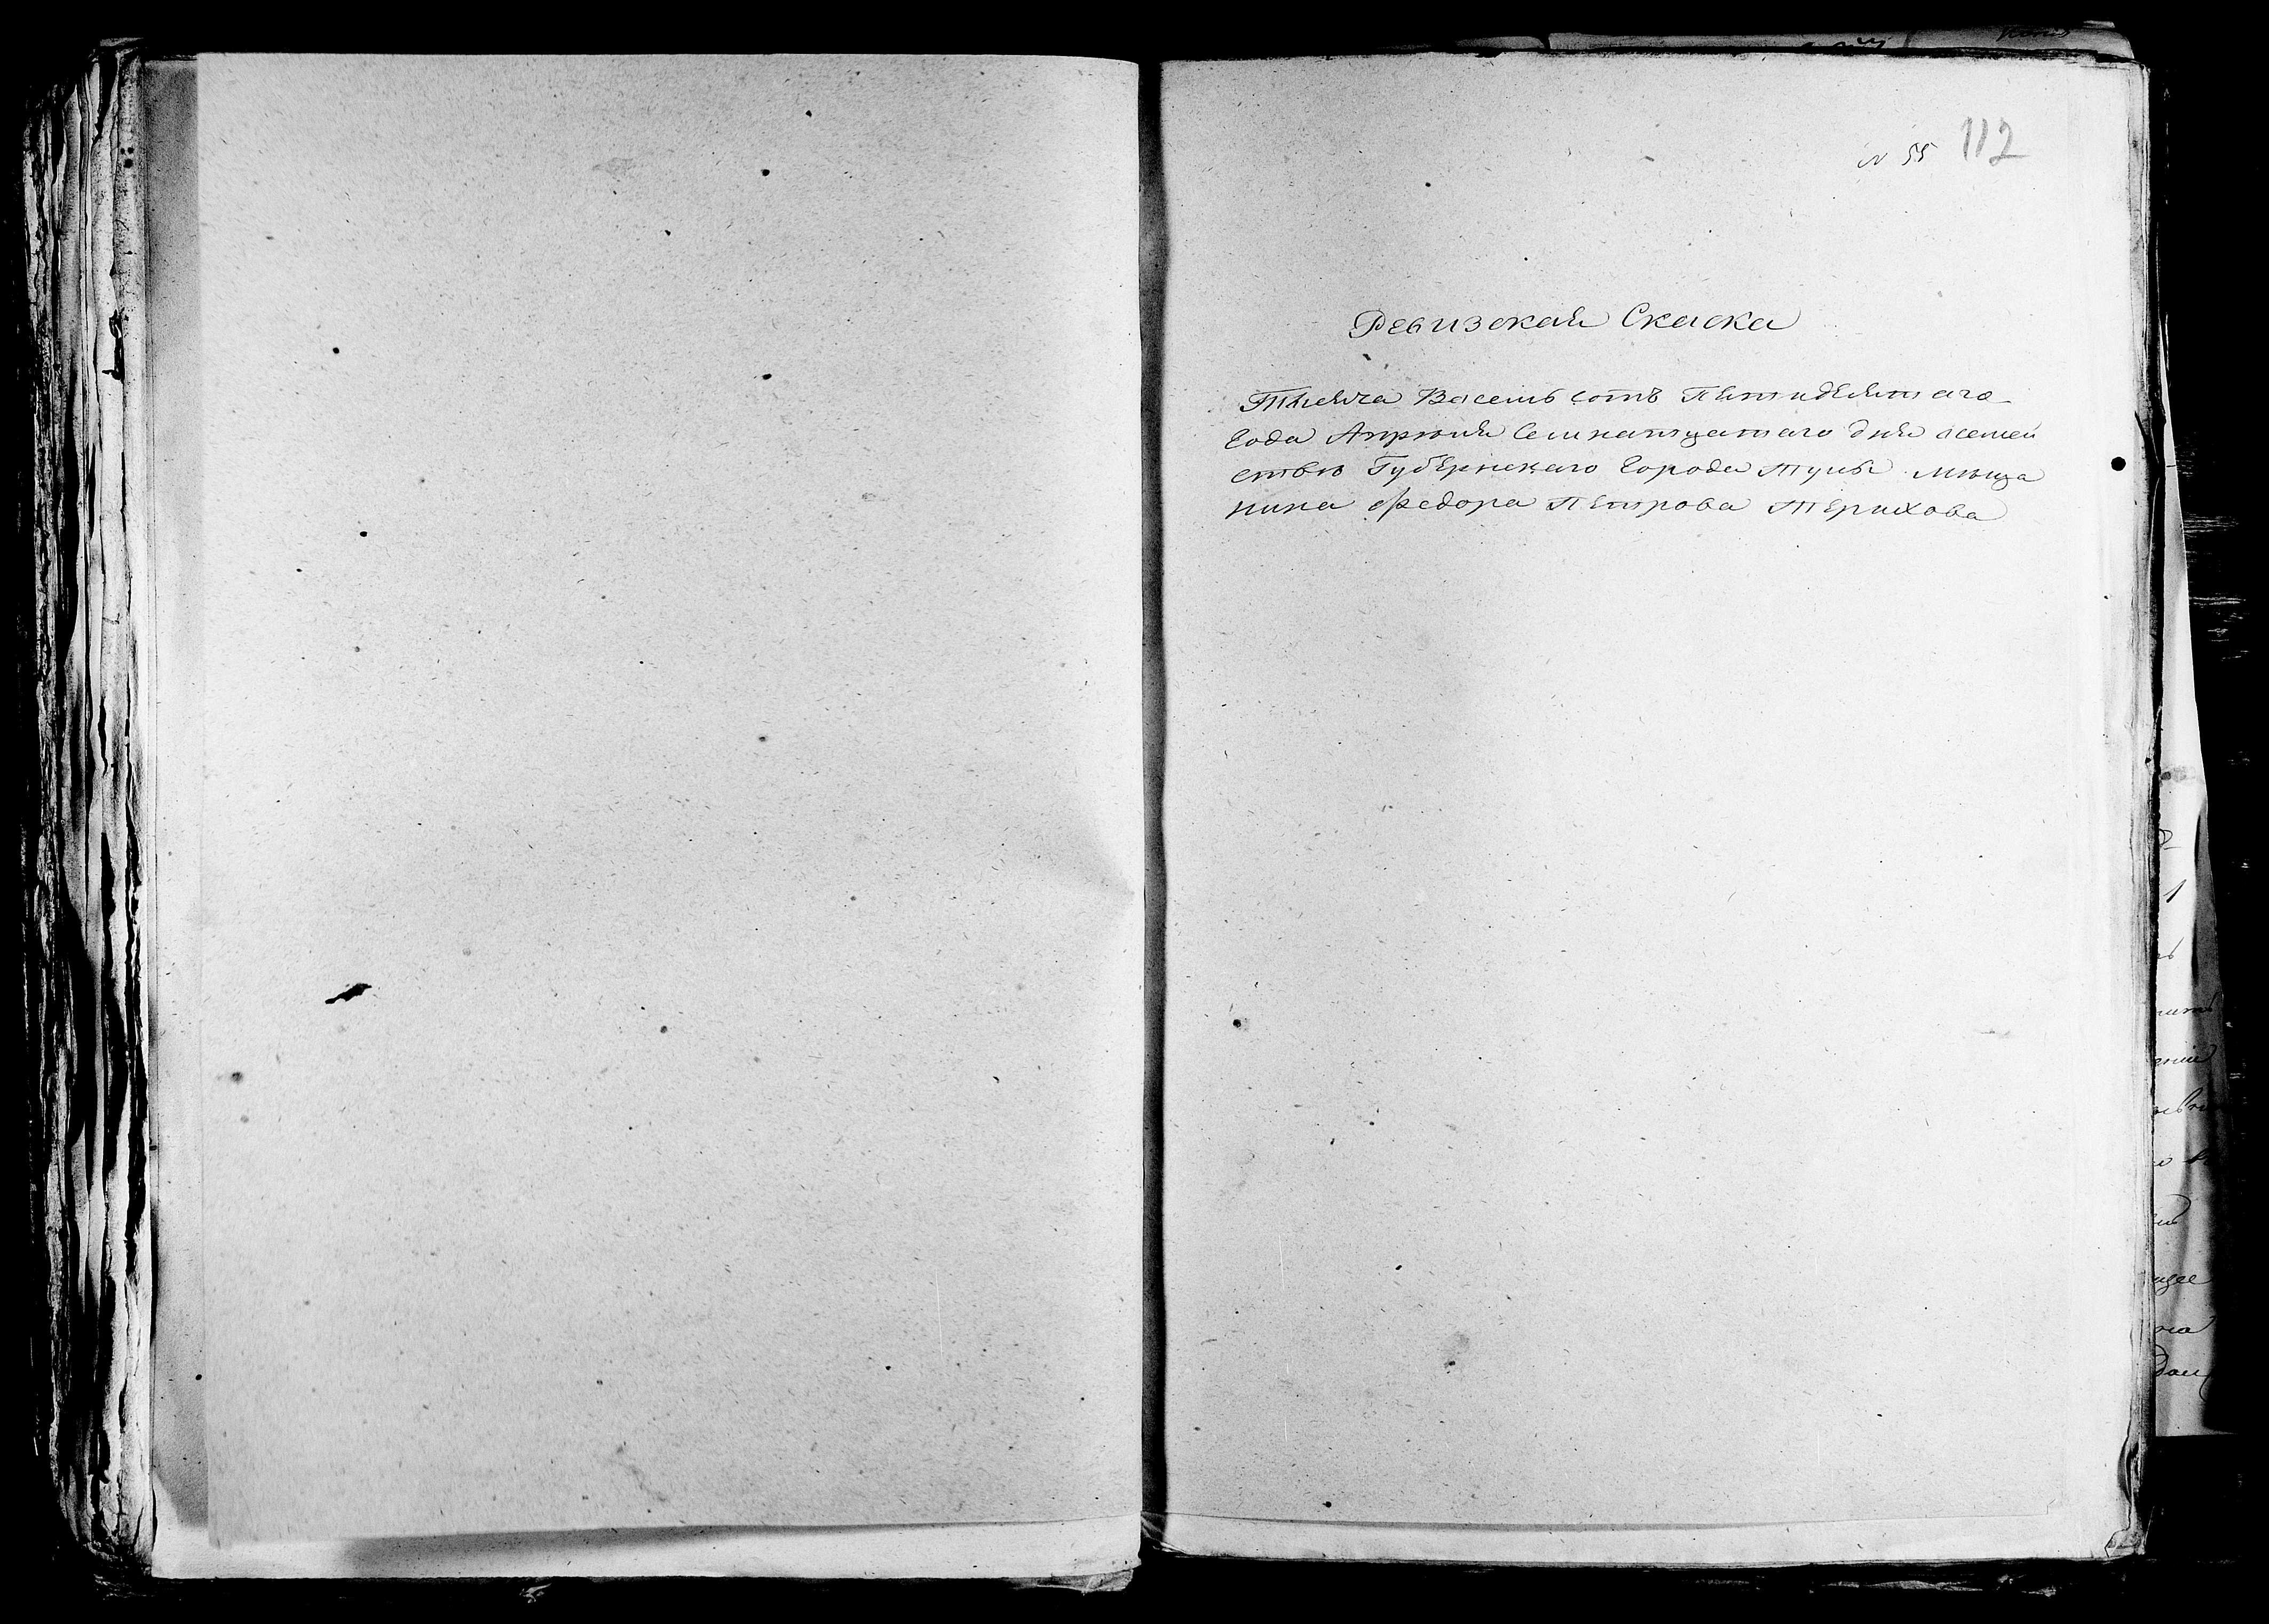 N 55 112
Ревизская Скаска
Тысяча Васемь сотъ Пятидесятаго
Года Апрѣля Семнатцатаго дня осемей
ствѣ Губернскаго Города Тулы мѣща
нина Федора Петрова Терихова